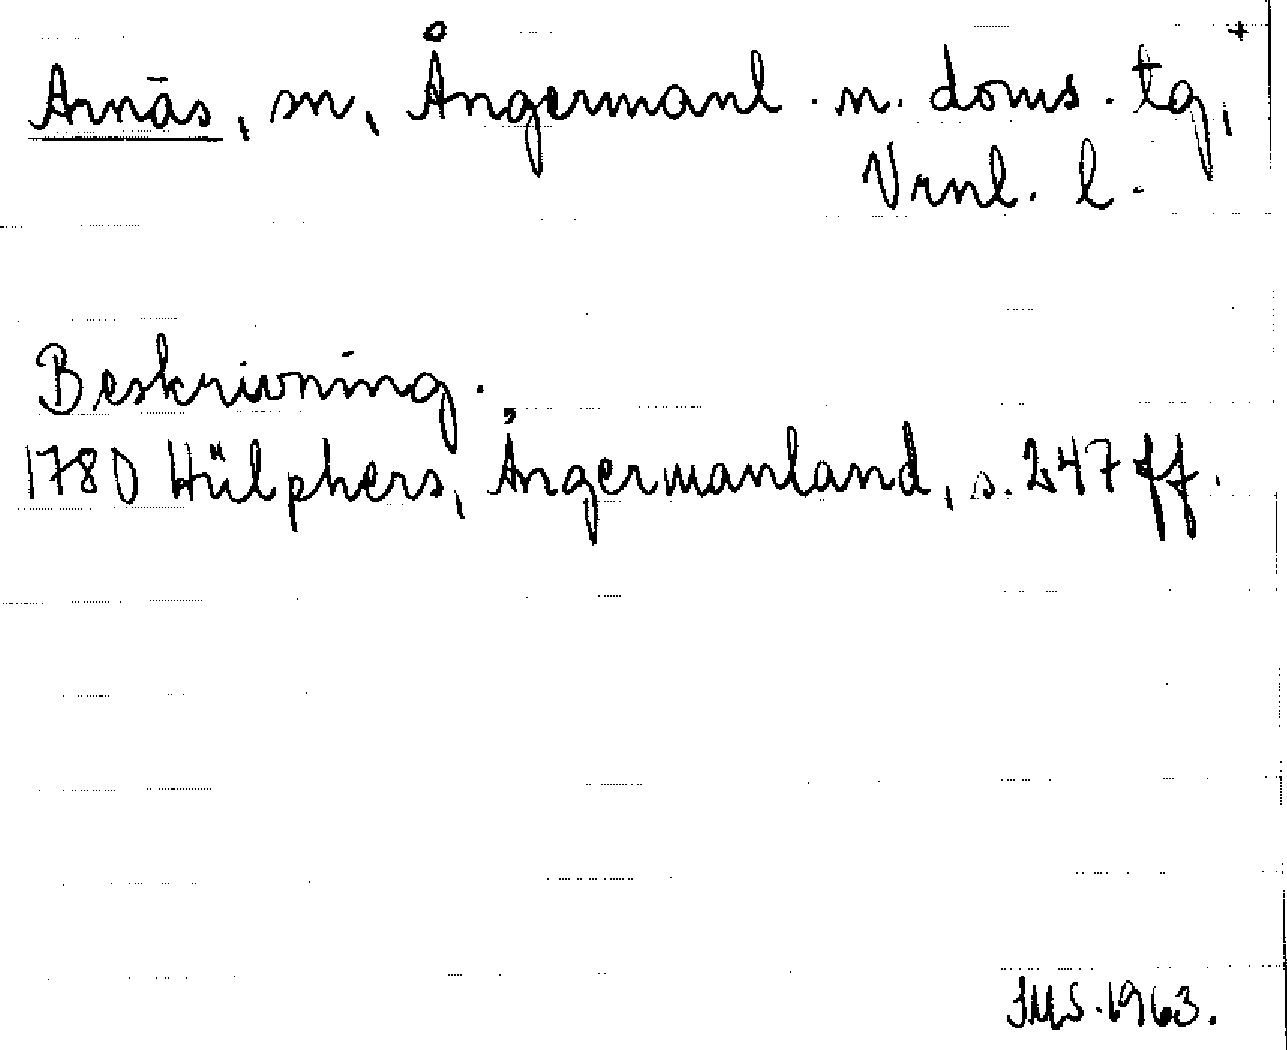 Arnäs, sn, Ångermanl. n. doms. tg, +
Vrnl. l.
Beskrivning.
1780 Hülphers, Ångermanland, s. 247 ff.
IMS. 1963.